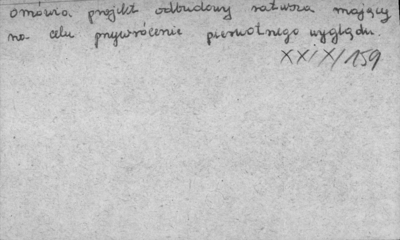 omówia projekt odbudowy ratusza mający
na celu przywrócenie pierwotnego wyglądu.
XXIX/159